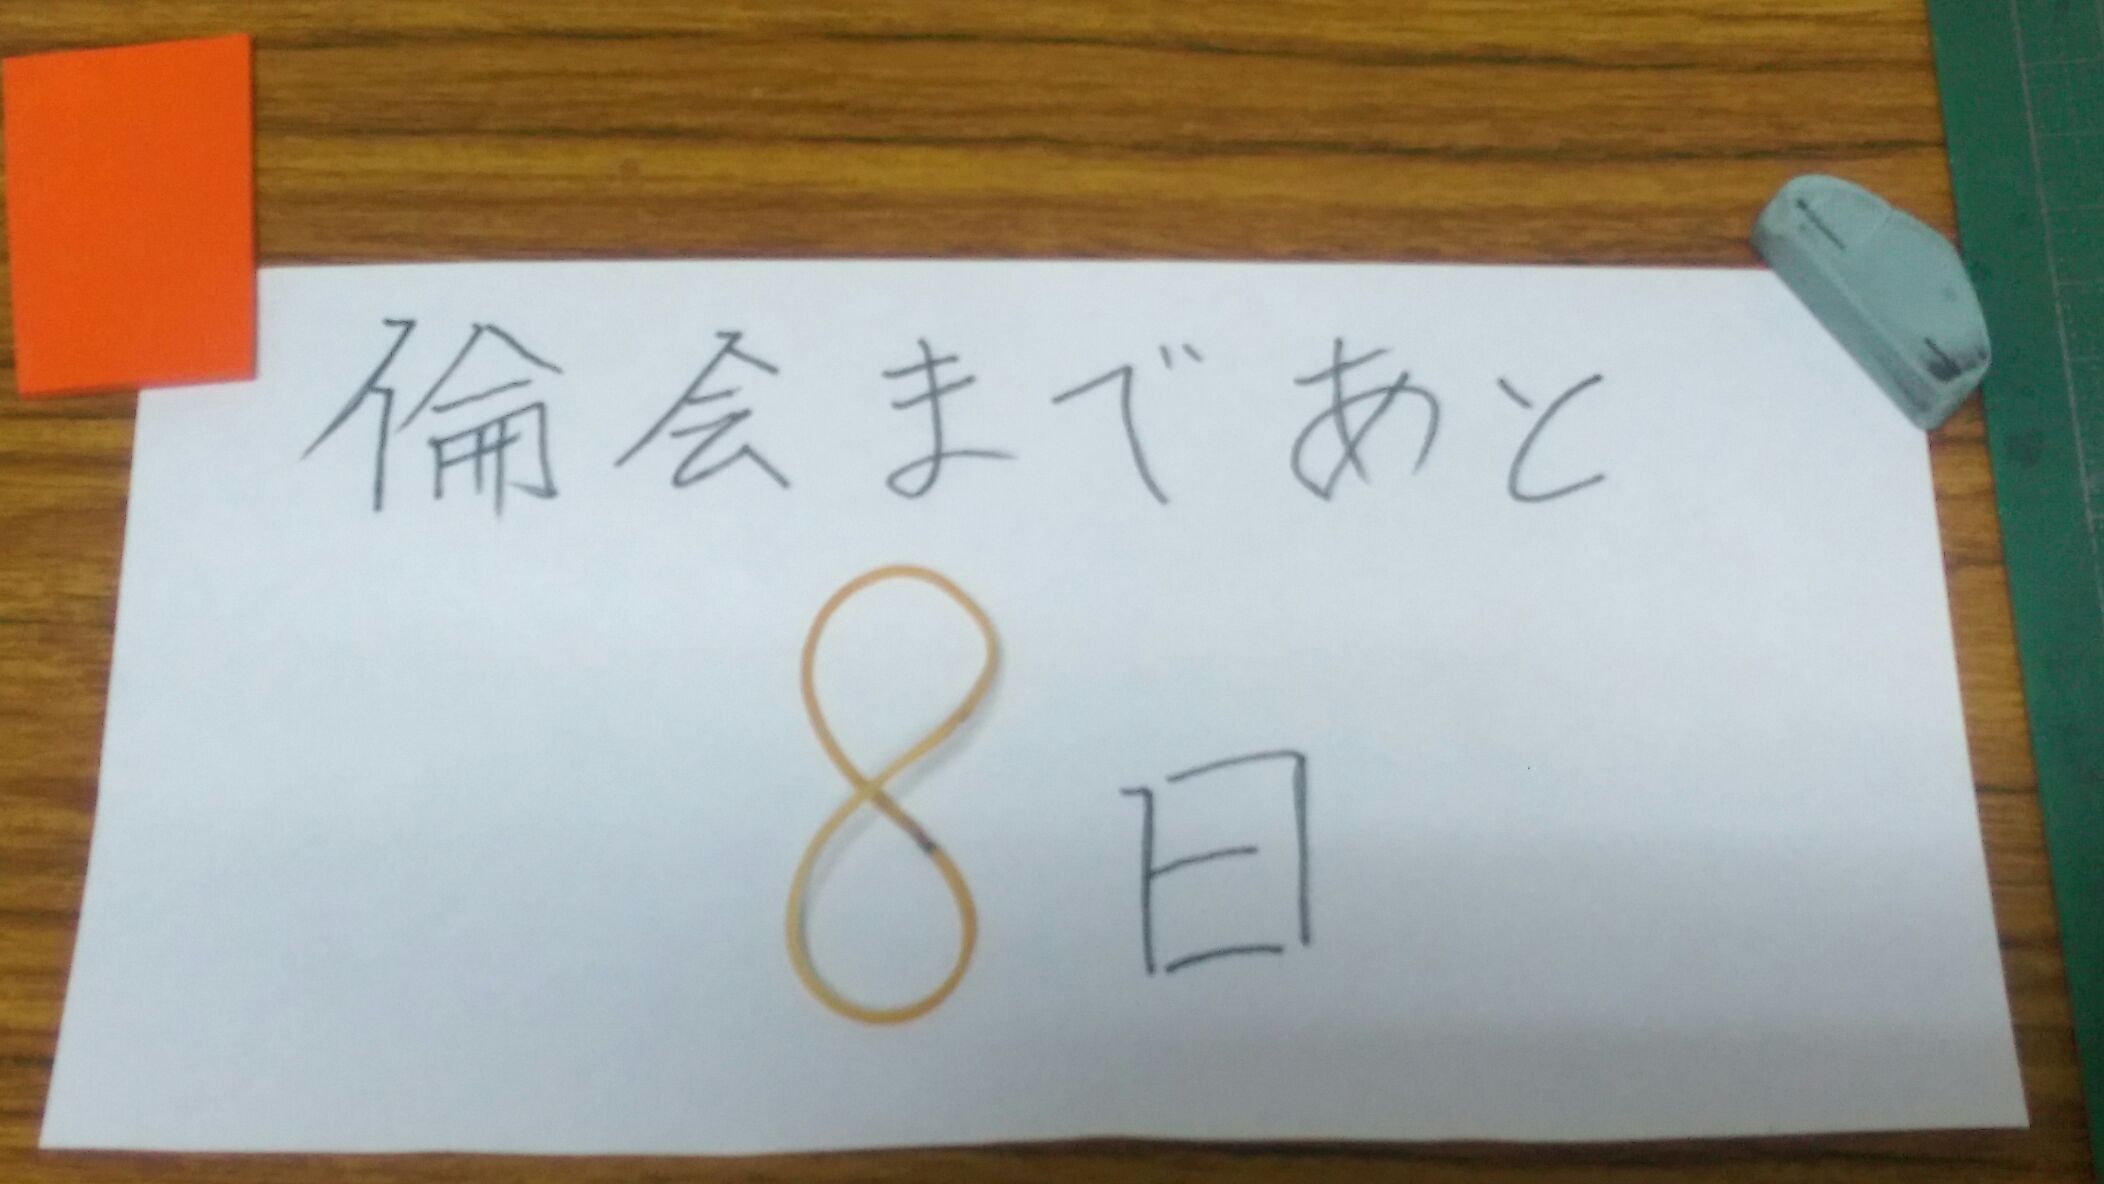 倫会まであと
8日